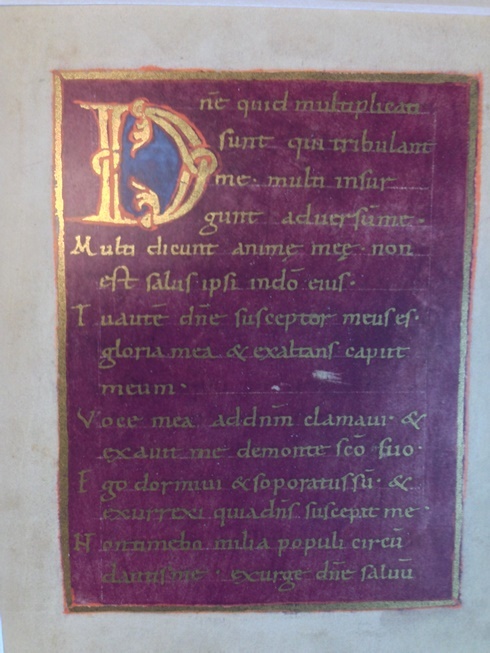 Dn̄e quid multiplicati
sunt qui tribulant
me· multi insur
gunt aduersū me·
Multi dicunt animę meę· non
est salus ipsi in dō eius·
Tu autē dn̄e susceptor meus es·
gloria mea & exaltans caput
meum·
Voce mea ad dn̄m clamaui &
exaudit me de monte scō suo·
Ego dormiui & soporatus sū· &
exurrexi quia dn̄s suscepit me·
Non timebo milia populi circū
dantis me· exurge dn̄e saluū